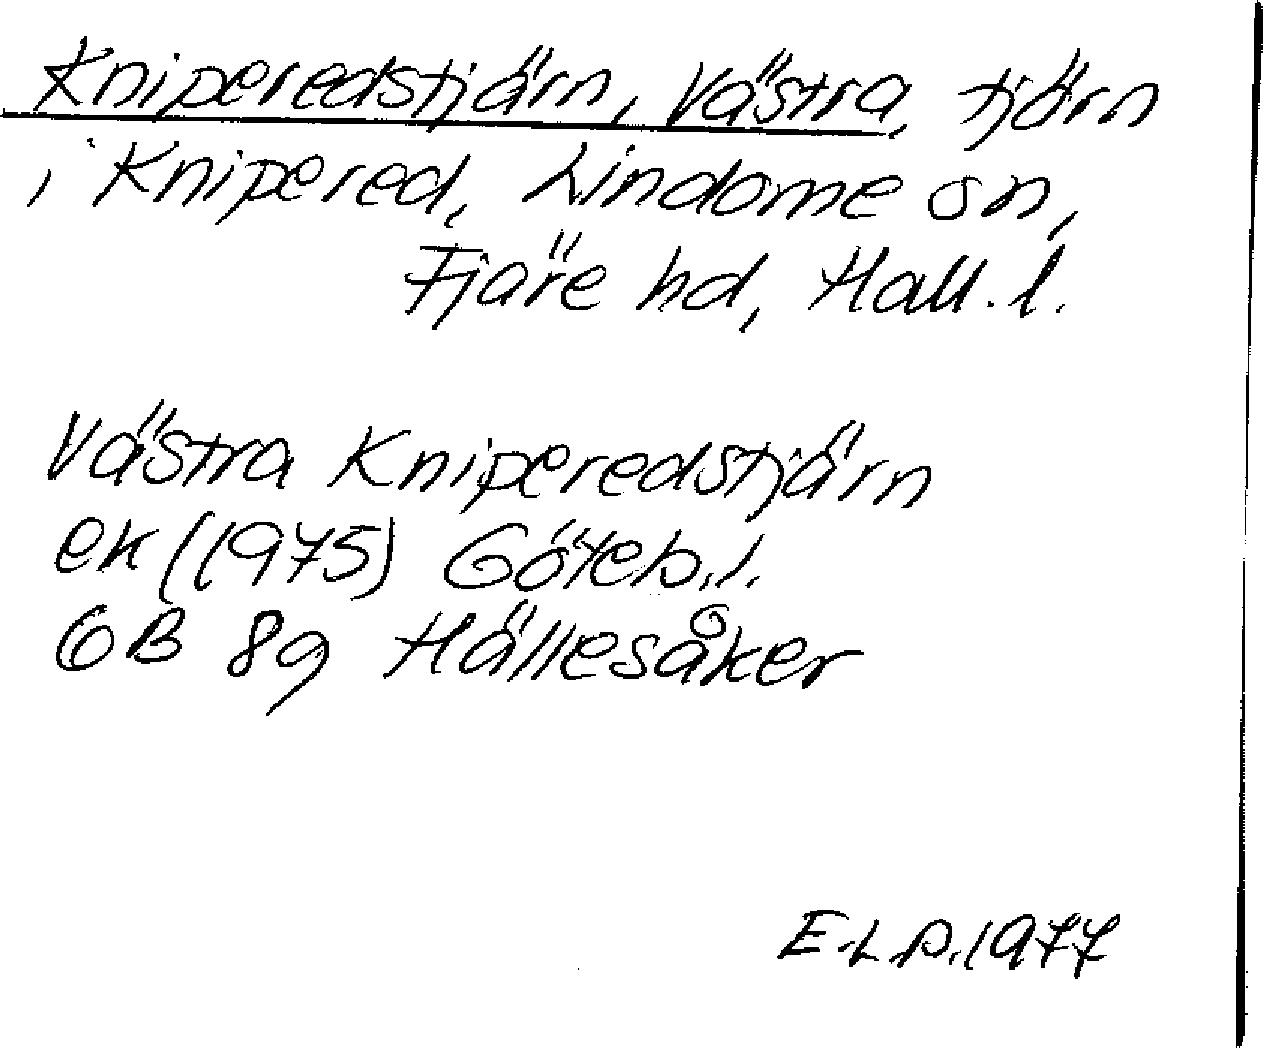 Kniperedstjärn, Västra, tjörn
i Knipered, Lindome sn,
Fjäre hd, Hall. l.
Västra Kniperedstjärn
ek (1975) Göteb. l.
6B 8g Hällesåker
E.L.P. 1977